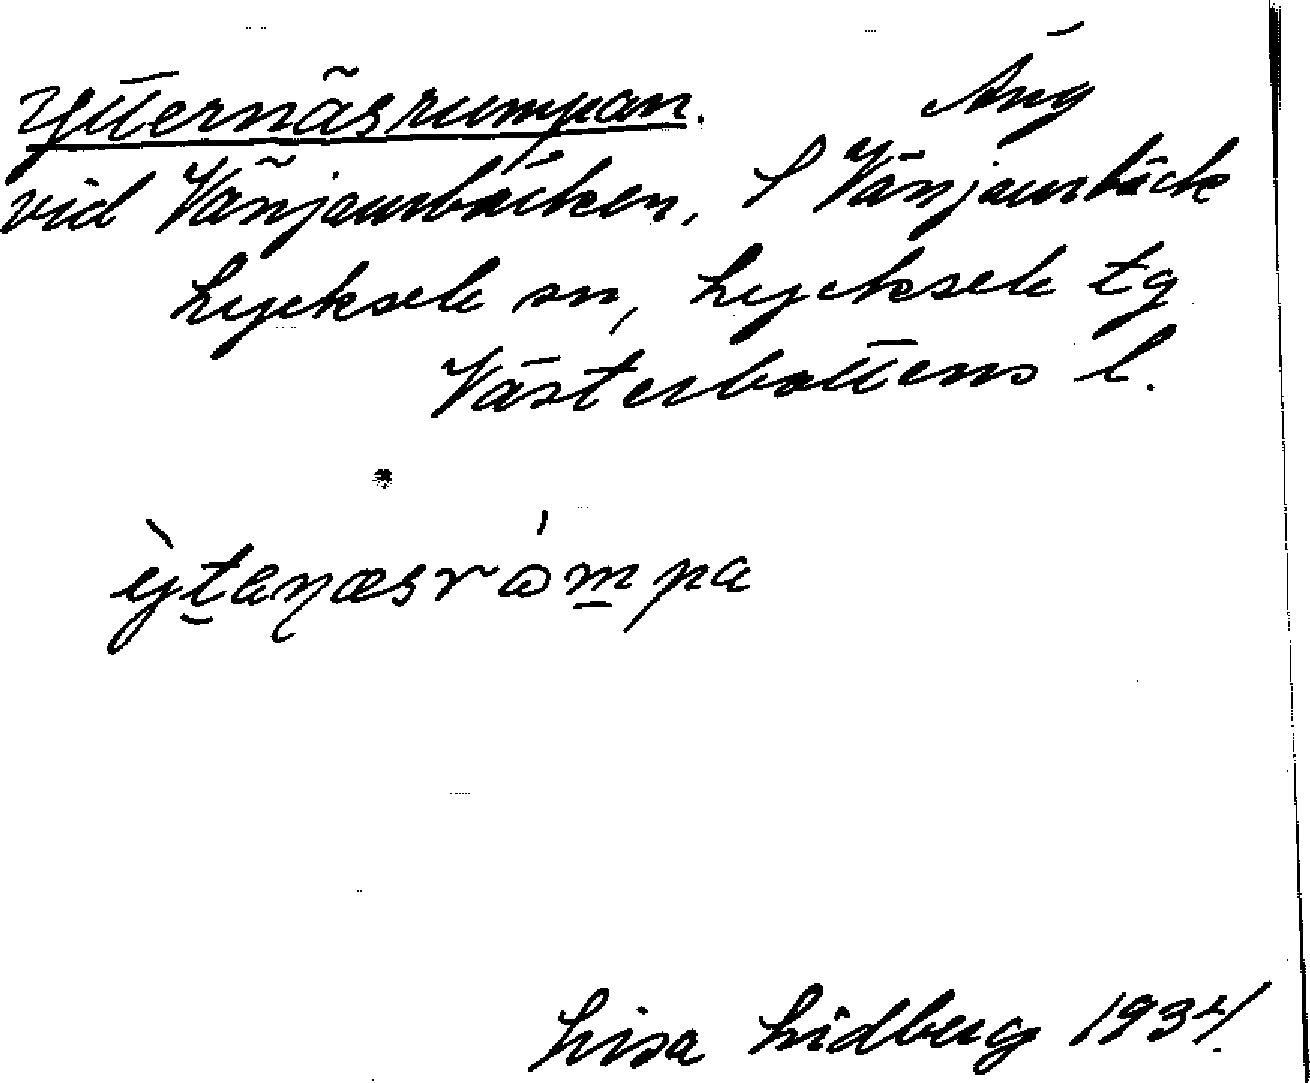 Ytternäsrumpan. Äng
vid Vänjaurbäcken, S Vänjaurbäck
Lycksele sn, Lycksele tg
Västerbottens l.
ỳtaɳæsrɷ́mpa
Lisa Lidberg 1934.